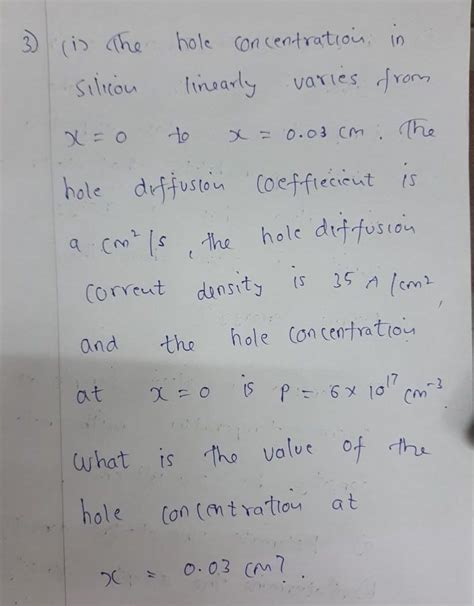 3) (i) The hole concentration in
silicon linearly varies from
x = 0 to x = 0.03 cm. The
hole diffusion coeffiecient is
9 cm²/s, the hole diffusion
corrent density is 35 A/cm²,
and the hole concentration
at x = 0 is p = 6 x 10¹⁷ cm⁻³
what is the value of the
hole concentration at
x = 0.03 cm?